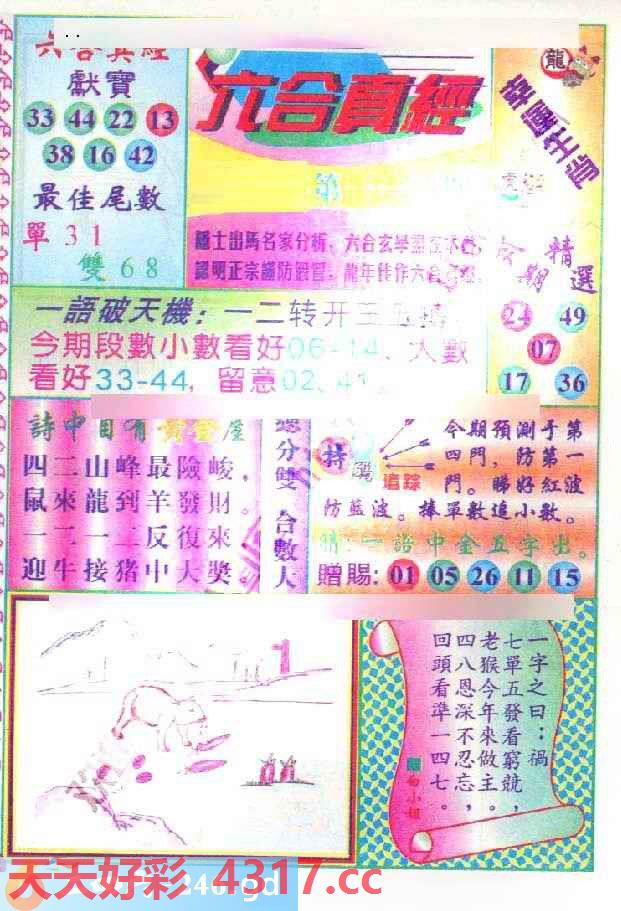 六合真經
獻寶
33 44 22 13
38 16 42
最佳尾數
單 3 1
雙 6 8
六合真經
第
龍
隱士出馬名家分析,六合玄學盡在本
認明正宗謹防假冒,龍年佳作六合
精選
期
24 49
07
17 36
一語破天機:一二转开三五
今期段數小數看好06-14、大數
看好33-44,留意02、41。
詩中自有黃金屋
四二山峰最險峻,
鼠來龍到羊發財。
一二一二反復來
迎牛接猪中大獎。
總分雙 合數大
特
追踪
今期預測于第
四門,防第一
門。睇好紅波
防藍波。捧單數追小數。
猜:一語中金五字出。
贈賜: 01 05 26 11 15
1
一字之曰:禍
七單五發看窮競,
老猴今年來做主。
四八恩深不忍忘,
回頭看準一四七。
白小姐
天天好彩 4317.cc
246 gd